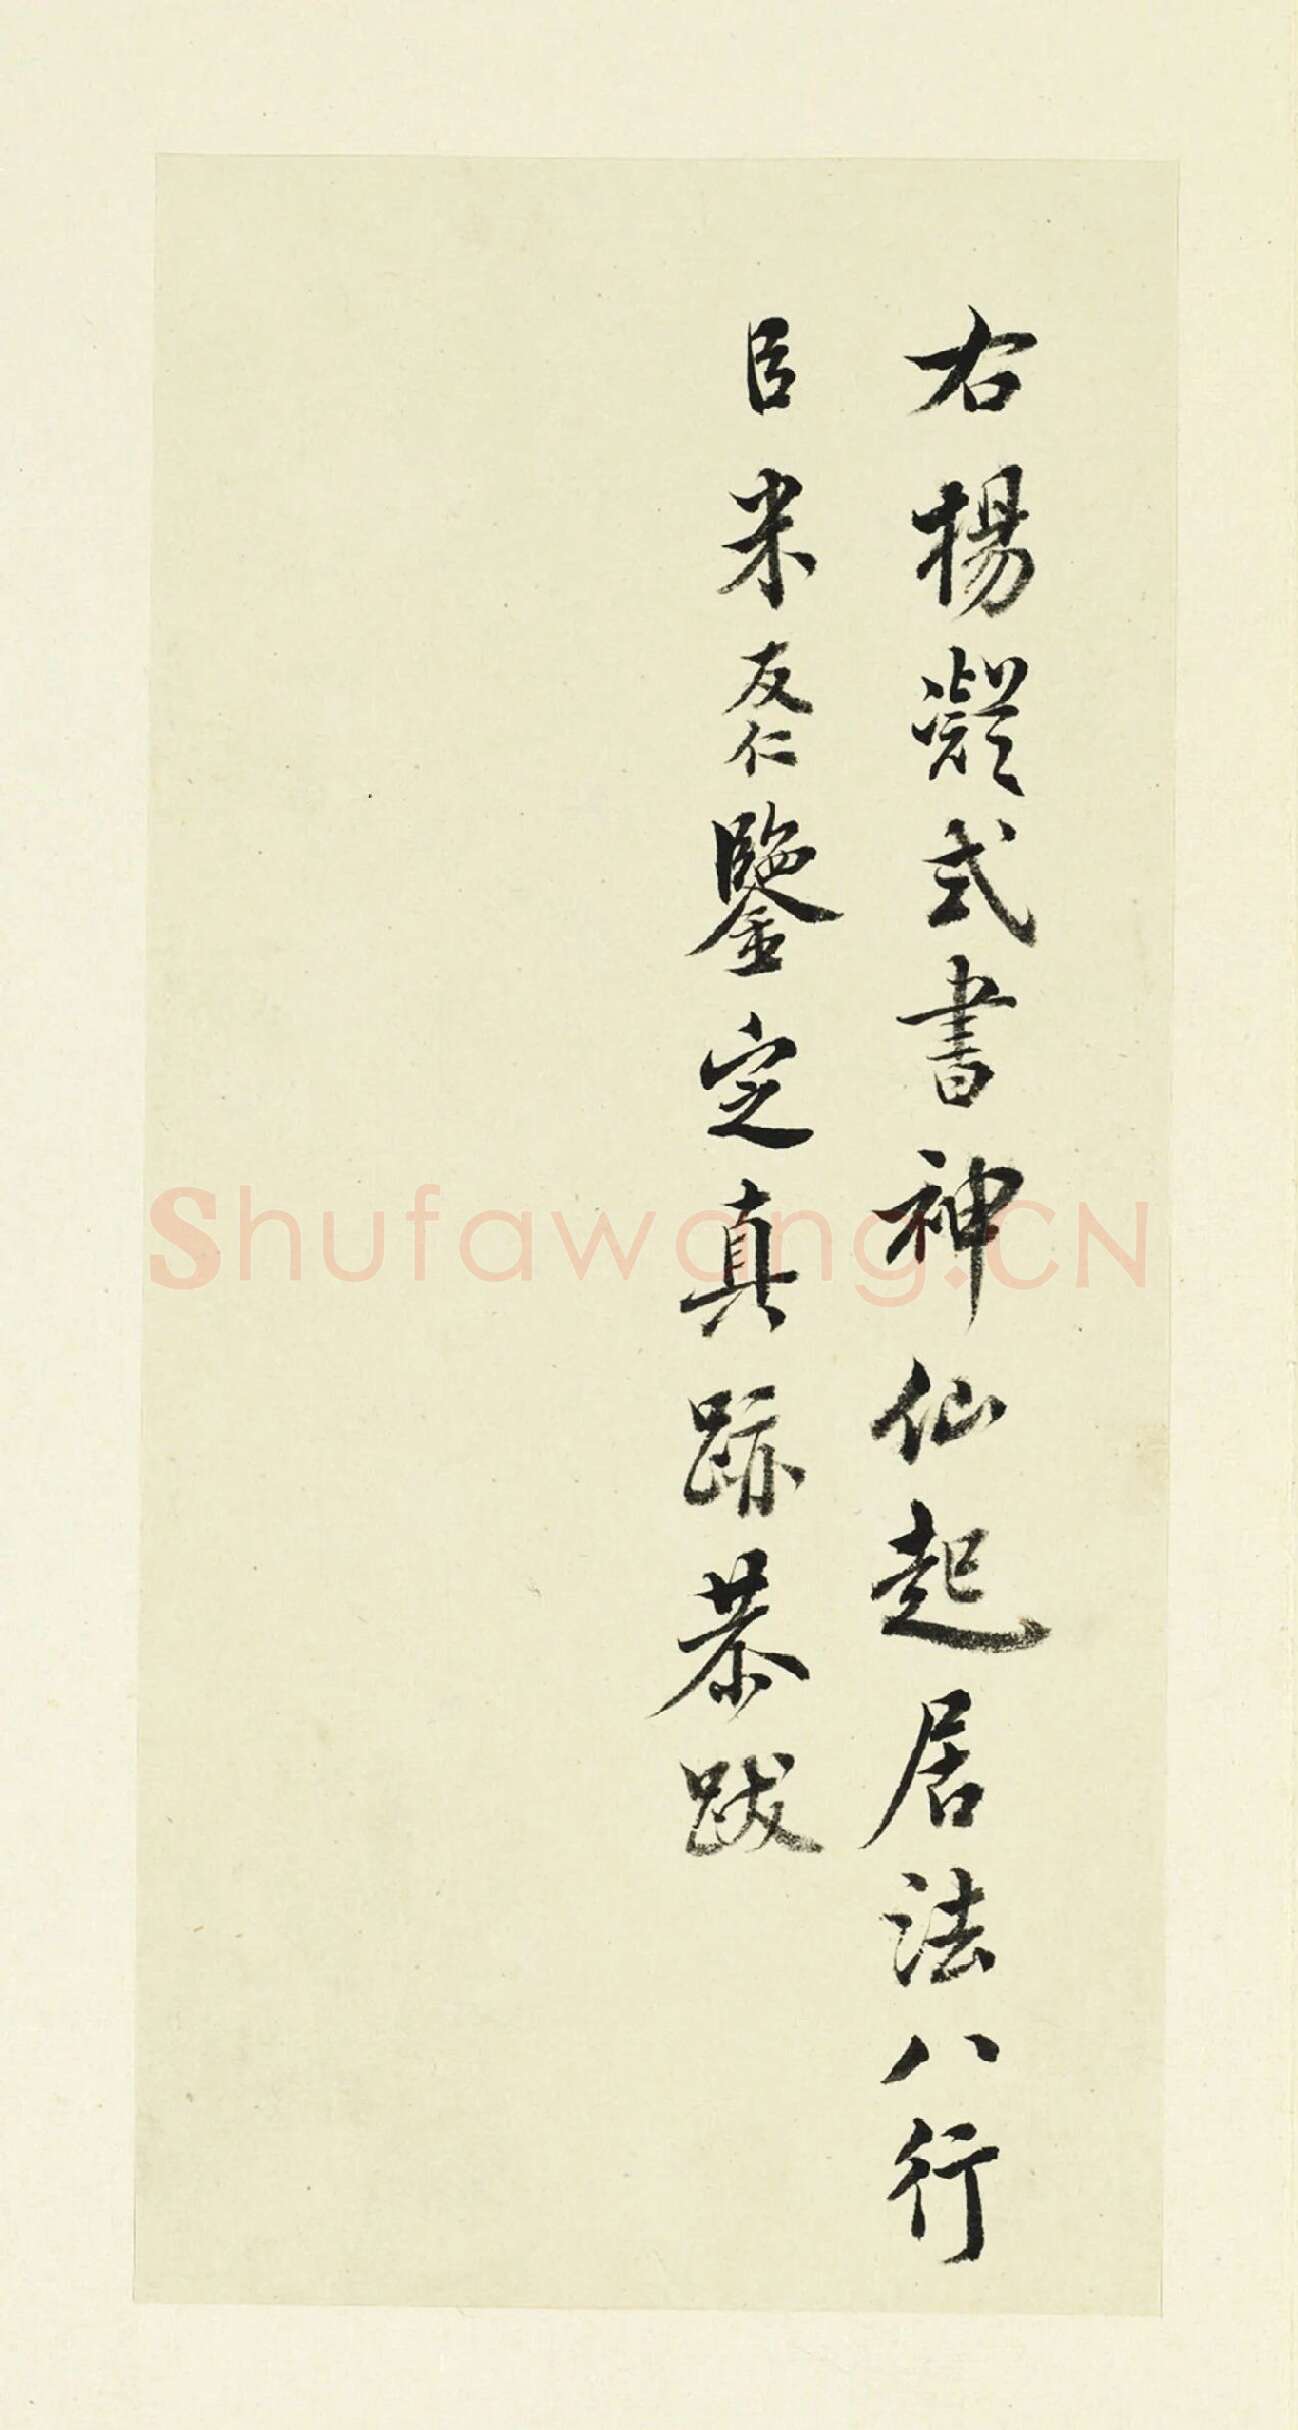 右楊凝式書神仙起居法八行
臣米友仁鑒定真跡恭跋
Shufawang.CN